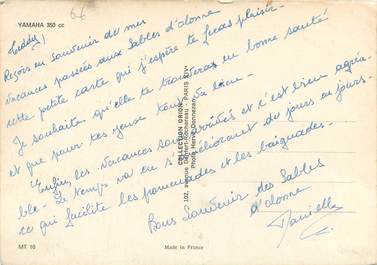 YAMAHA 350 cc
66
Teddy!
Reçois en souvenir de mes
vacances passées aux Sables d'olonne
cette petite carte qui j'espère te feras plaisir-
Je souhaite qu'elle te trouveras en bonne santé
et que pour tes yeux tout va bien-
Enfin les vacances sont arrivées et c'est bien agréa-
ble- Le temps va en s'améliorant de jours en jours-
ce qui facilite les promenades et les baignades-
Bons Souvenir des Sables
d'olonne
Danielle
COLLECTION ORION
102, avenue Denfert-Rochereau - PARIS XIVe
Photo Hervé Donnezan
MT 10
Made in France